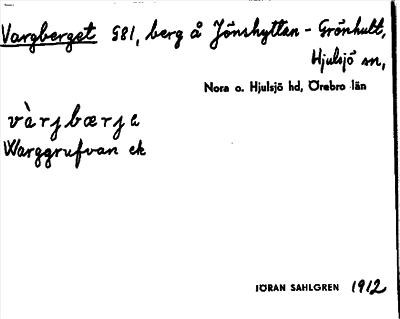 Vargberget 981, berg å Jönshyttan - Grönhult,
Hjulsjö sn,
Nora o. Hjulsjö hd, Örebro län
vàrjbærje
Warggrufvan ek
JÖRAN SAHLGREN 1912